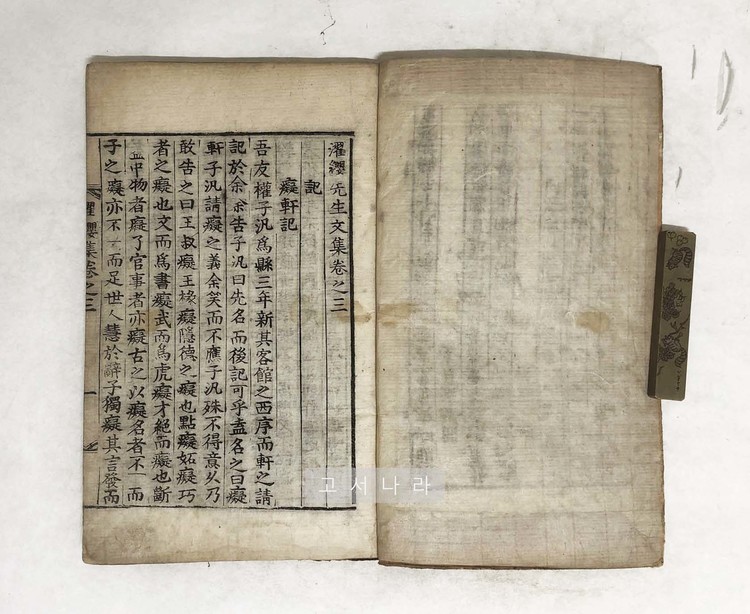 濯纓先生文集卷之三
記
癡軒記
吾友權子汎爲縣三年新其客館之西序而軒之請
記於余余告子汎曰先名而後記可乎盍名之曰癡
軒子汎請癡之義余笑而不應子汎殊不得意久乃
敢告之曰王叔癡王掾癡隱德之癡也點癡妬癡巧
者之癡也文而爲書癡武而爲虎癡才絕而癡也斷
中物者癡了官事者亦癡古之以癡名者不一而
子之癡亦不一而足世人慧於辭子獨癡其言發而
濯纓集卷之三
一
고서나라